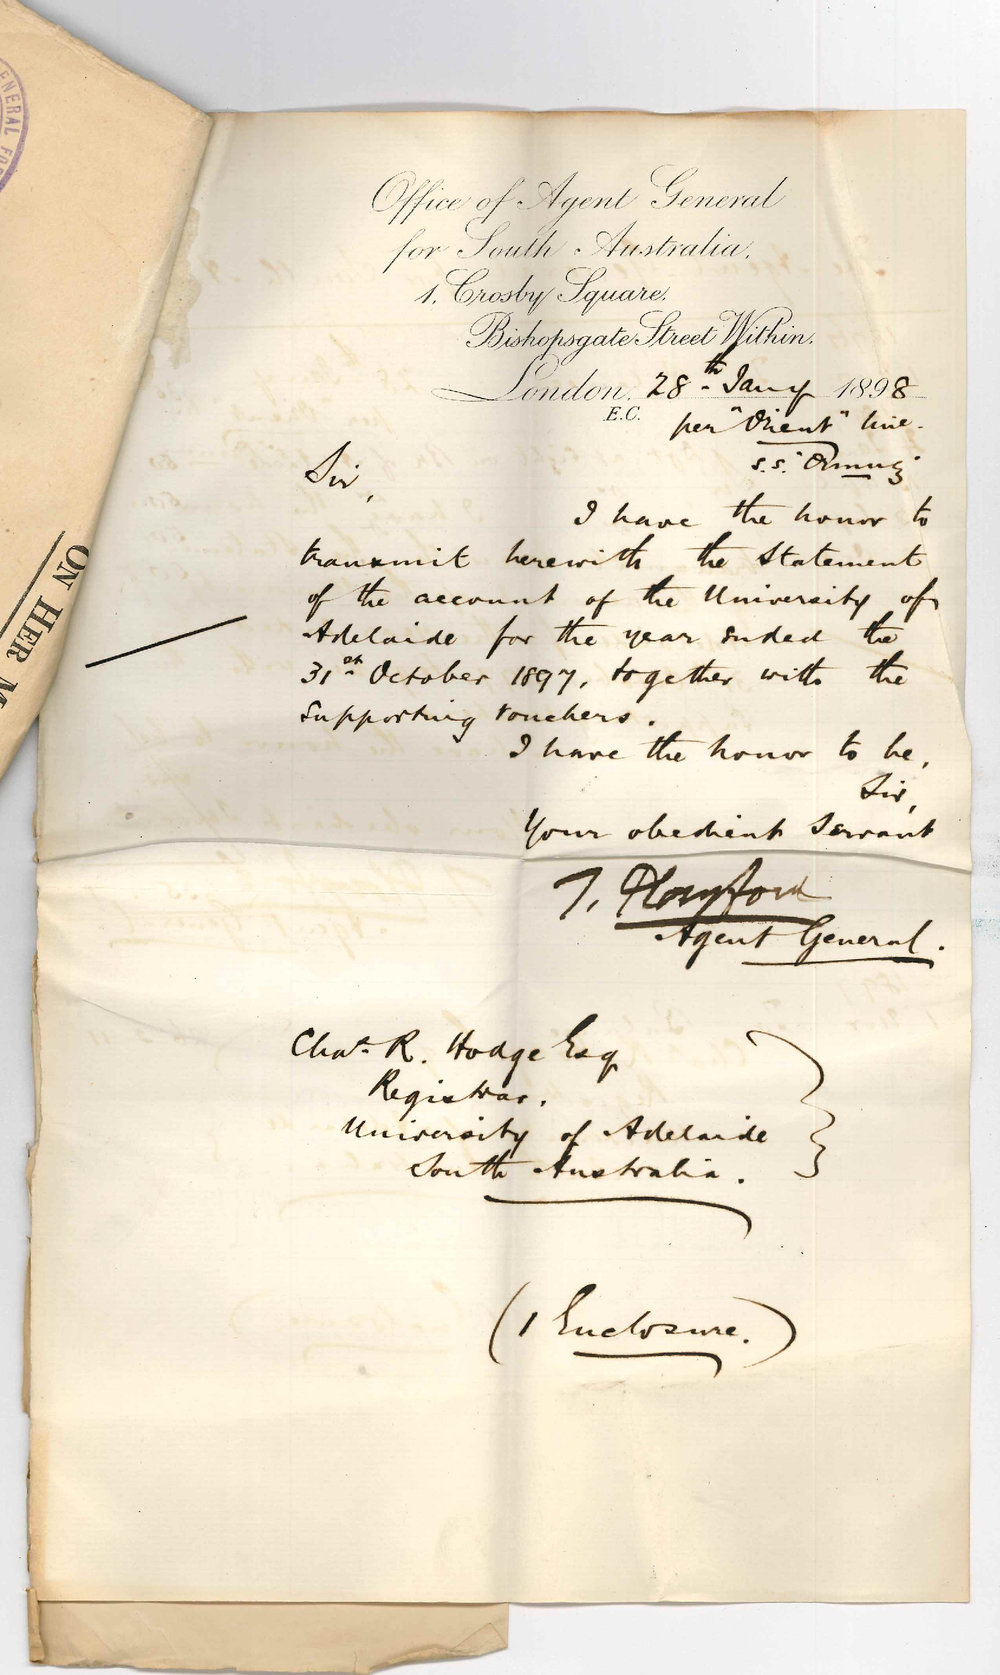 ENERAL FOR
ON HER M
Office of Agent General
for South Australia,
1, Crosby Square,
Bishopsgate Street Within.
London, 28th Jany 1898
E.C.
per "Orient" line.
s.s. "Ormuz"
Sir,
I have the honor to
transmit herewith the Statement
of the account of the University of
Adelaide for the year ended the
31st October 1897, together with the
supporting vouchers.
I have the honor to be,
Sir,
Your obedient Servant
T. Playford
Agent General.
Chas. R. Hodge Esq
Registrar.
University of Adelaide
South Australia.
(1 Enclosure.)